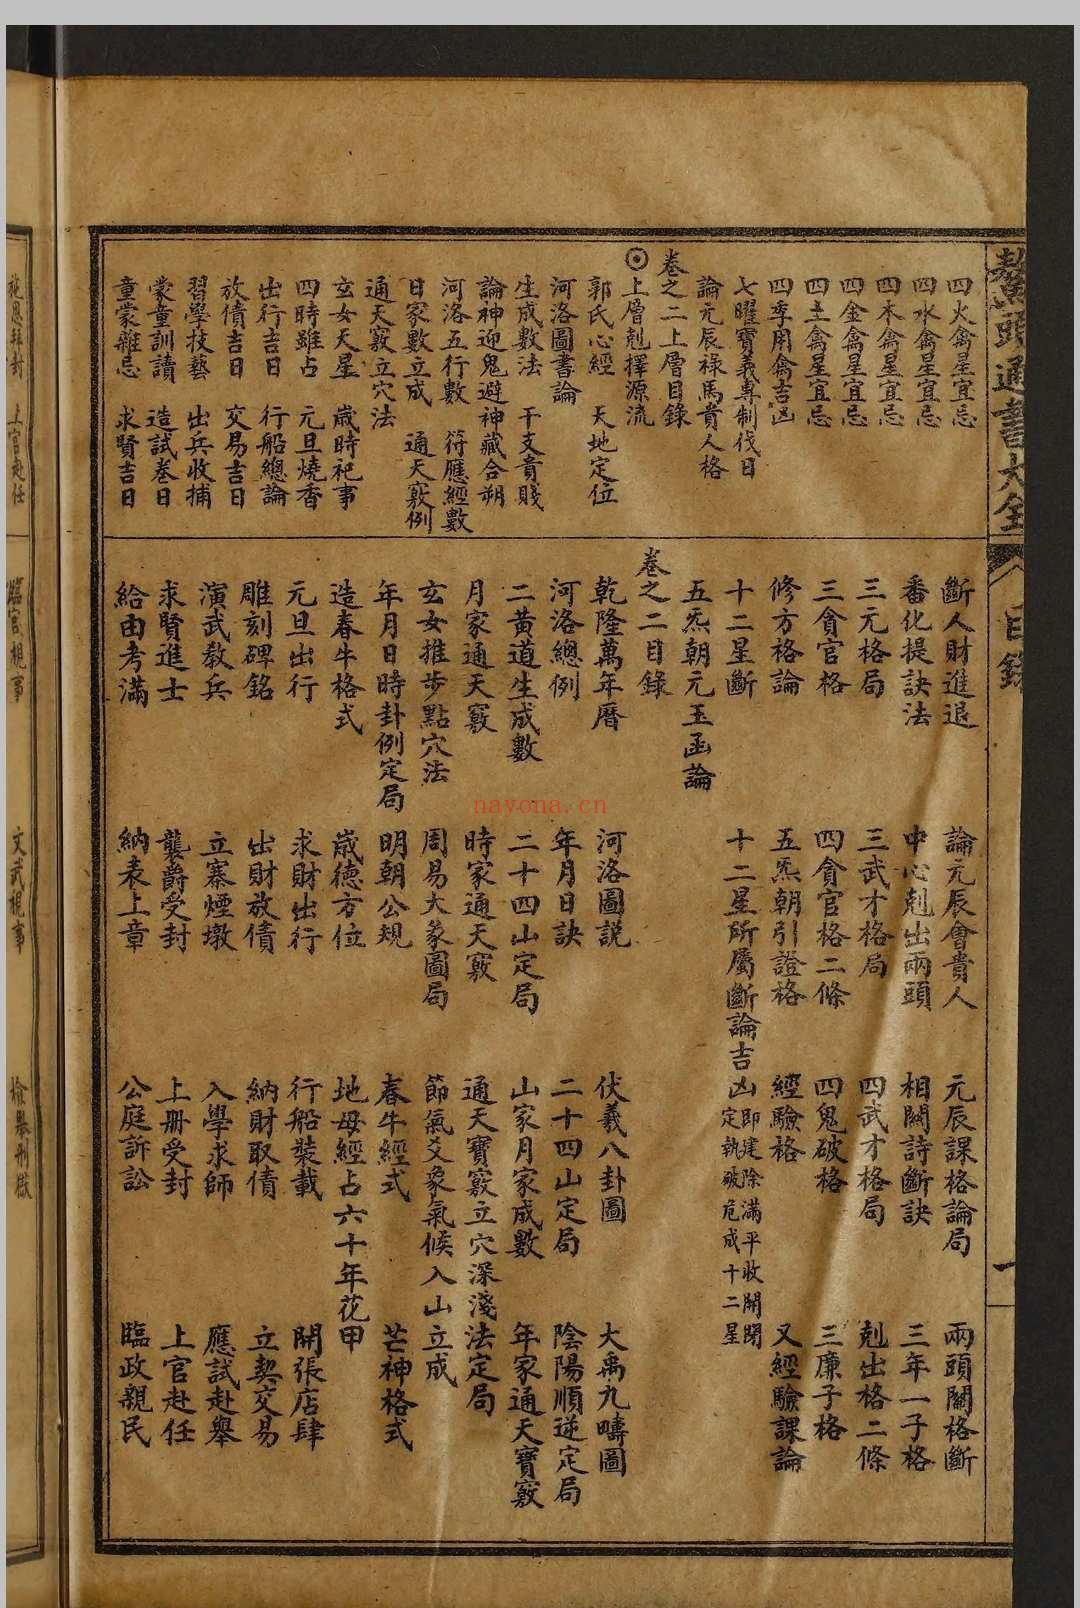 鰲頭通書大全
目錄
一
四火禽星宜忌
四水禽星宜忌
四木禽星宜忌
四金禽星宜忌
四土禽星宜忌
四季用禽吉凶
七曜寶義專制伐日
論元辰祿馬貴人格
卷之二上層目錄
上層剋擇源流
郭氏心經 天地定位
河洛圖書論
生成數法 干支貴賤
論神迎鬼避神藏合朔
河洛五行數 符應經數
日家數立成 通天竅例
通天竅立穴法
玄女天星 歲時祀事
四時雖占 元旦燒香
出行吉日 行船總論
放債吉日 交易吉日
習學技藝 出兵收捕
蒙童訓讀 造試卷日
童蒙雜忌 求賢吉日
斷人財進退 論元辰會貴人 元辰課格論局 兩頭關格斷
番化提訣法 中心剋出兩頭 相關詩斷訣 三年一子格
三元格局 三武才格局 四武才格局 剋出格二條
三貪官格 四貪官格二條 四鬼破格 三廉子格
修方格論 五炁朝引證格 經驗格 又經驗課論
十二星斷 十二星所屬斷論吉凶 即建除滿平收開閉定執破危成十二星
五炁朝元玉函論
卷之二目錄
乾隆萬年曆 河洛圖説 伏羲八卦圖 大禹九疇圖
河洛總例 年月日訣 二十四山定局 陰陽順逆定局
二黃道生成數 二十四山定局 山家月家成數 年家通天寶竅
月家通天竅 時家通天竅 通天寶竅立穴深淺法定局
玄女推步點穴法 周易大象圖局 節氣爻象氣候入山立成
年月日時卦例定局 明朝公規 春牛經式 芒神格式
造春牛格式 歲德方位 地母經占六十年花甲
元旦出行 求財出行 行船裝載 開張店肆
雕刻碑銘 出財放債 納財取債 立契交易
演武教兵 立寨煙墩 入學求師 應試赴舉
求賢進士 襲爵受封 上册受封 上官赴任
給由考滿 納表上章 公庭訴訟 臨政親民
上官赴任
臨官視事
文武視事
nayona.cn